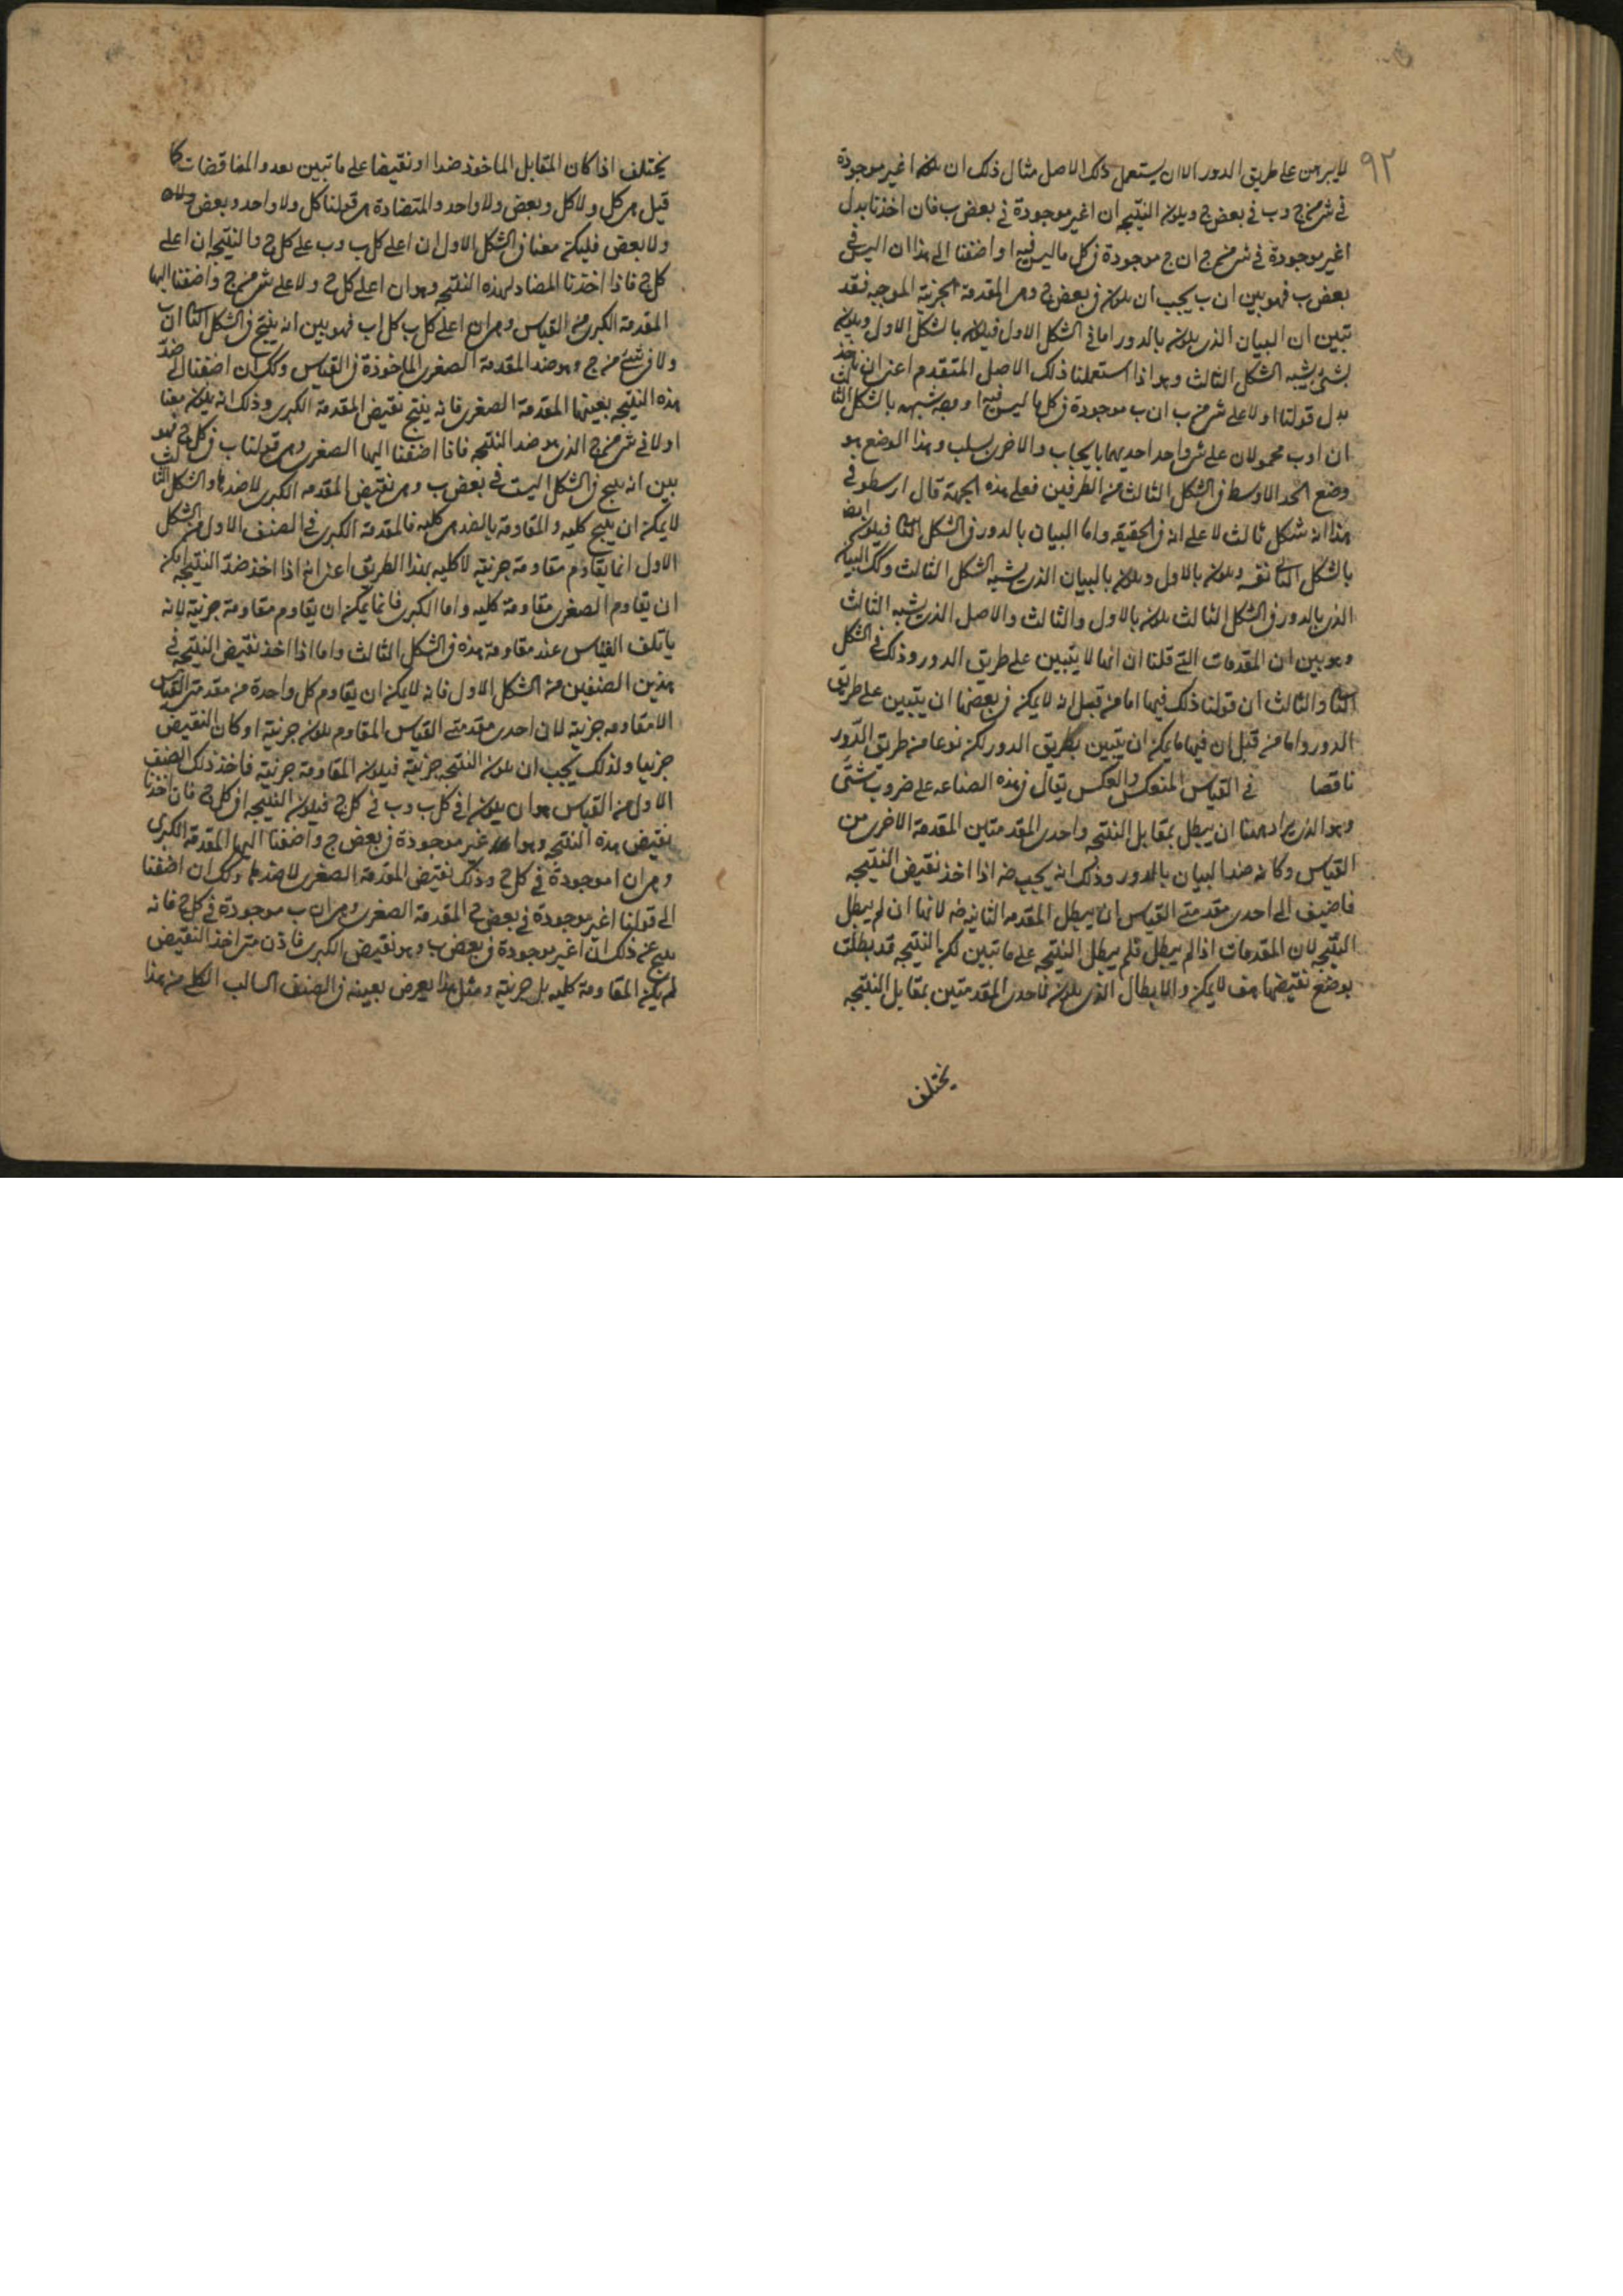 ٩٢
لا يبرهن على طريق الدور الا ان يستعمل ذلك الاصل مثال ذلك ان يكون ا غير موجودة
في شئ من ج و ب في بعض ج ويكون النتيجه ان ا غير موجودة في بعض ب فان اخذنا بدل
ا غير موجودة في شئ من ج ان ج موجودة في كل ما ليس فيه ا واضفنا الى هذا ان ا ليس في
بعض ب فهو بين ان ب يجب ان يكون في بعض ج وهى المقدمة الجزئية الموجبه فقد
تبين ان البيان الذى يكون بالدور اما في الشكل الاول فيكون بالشكل الاول ويكون
بشئ يشبه الشكل الثالث وهو اذا استعملنا ذلك الاصل المتقدم اعنى ان ناخذ
بدل قولنا ا ولا على شئ من ب ان ب موجودة في كل ما ليس فيه ا ووجه شبهه بالشكل الثالث
ان ا و ب محمولان على شئ واحد احديهما بايجاب والاخرى بسلب وهذا الوضع هو
وضع الحد الاوسط في الشكل الثالث من الطرفين فعلى هذه الجهة قال ارسطو في
هذا انه شكل ثالث لا على انه في الحقيقه واما البيان بالدور في الشكل الثانى فيكون ايضا
بالشكل الثانى نفسه ويكون بالاول ويكون بالبيان الذى يشبه الشكل الثالث وكك البيان
الذى بالدور في الشكل الثالث يكون بالاول والثالث والاصل الذى يشبه الثالث
وهو بين ان المقدمات التى قلنا ان انها لا يتبين على طريق الدور وذلك في الشكل
الثانى والثالث ان قولنا ذلك فيها اما من قبل انه لا يمكن في بعضها ان يتبين على طريق
الدور واما من قبل ان فيها ما يمكن ان يتبين بطريق الدور لكن نوعا من طريق الدّور
ناقصا في القياس المنعكس والعكس يقال في هذه الصناعه على ضروب شتّى
وهو الذى يراد ههنا ان يبطل بمقابل النتيجه واحدى المقدمتين المقدمة الاخرى من
القياس وكانه ضد البيان بالدور وذلك انه يجب ضه اذا اخذ نقيض النتيجه
فاضيف الى احدى مقدمتى القياس ان يبطل المقدمه الثانيه ضه لانها ان لم يبطل
النتيجه لان المقدمات اذا لم يبطل فلم يبطل النتيجه على ما تبين لكن النتيجه قد بطلت
بوضع نقيضها هف لا يمكن والابطال الذى يكون لاحدى المقدمتين بمقابل النتيجه
يختلف
يختلف اذا كان المقابل الماخوذ ضدا او نقيضا على ما تبين بعد والمناقضات كما
قيل هى كل ولا كل وبعض ولا واحد والمتضادة هى قولنا كل ولا واحد وبعض
ولا بعض فليكن معنا في الشكل الاول ان ا على كل ب و ب على كل ج والنتيجه ان ا على
كل ج فاذا اخذنا المضاد لهذه النتيجه وهو ان ا على كل ج ولا على شئ من ج واضفنا اليها
المقدمة الكبرى من القياس وهى ان ا على كل ب كل ا ب فهو بين انه ينتج في الشكل الثانى ان ب
ولا في شئ من ج وهو ضد المقدمة الصغرى الماخوذة في القياس وكك ان اضفنا الى ضدّ
هذه النتيجه بعينها المقدمة الصغرى فانه ينتج نقيض المقدمة الكبرى وذلك انه يكون معنا
ا ولا في شئ من ج الذى هو ضد النتيجه فاذا اضفنا اليها الصغرى وهى قولنا ب في كل ج فهو
بين انه ينتج في الشكل الثالث ا ليست في بعض ب وهى نقيض المقدمه الكبرى لا ضدها والشكل الثالث
لا يمكن ان ينتج كليه والمقاومة بالضد هى كليه فالمقدمة الكبرى في الصنف الاول من الشكل
الاول انما يقاوم مقاومة جزئية لا كليه بهذا الطريق اعنى انه اذا اخذ ضدّ النتيجه امكن
ان يقاوم الصغرى مقاومة كليه واما الكبرى فانما يمكن ان يقاوم مقاومة جزئية لانه
ياتلف القياس عند مقاومة هذه في الشكل الثالث واما اذا اخذ نقيض النتيجه في
هذين الصنفين من الشكل الاول فانه لا يمكن ان يقاوم كل واحدة من مقدمتى القياس
الا مقاومه جزئية لان احدى مقدمتى القياس المقاوم يكون جزئية او كان النقيض
جزئيا ولذلك يجب ان يكون النتيجه جزئية فيكون المقاومة جزئية فاخذ ذلك الصنف
الاول من القياس هو ان يكون ا في كل ب و ب في كل ج فيكون النتيجه ا في كل ج فان اخذنا
نقيض هذه النتيجه وهو ا غير موجودة في بعض ج واضفنا اليها المقدمة الكبرى
وهى ان ا موجودة في كل ج وذلك نقيض المقدمة الصغرى لا ضدها وكك ان اضفنا
الى قولنا ا غير موجودة في بعض ج المقدمة الصغرى وهى ان ب موجودة في كل ج فانه
ينتج عن ذلك ان ا غير موجودة في بعض ب وهو نقيض الكبرى فاذن متى اخذ النقيض
لم يكن المقاومة كليه بل جزئية ومثل هذا يعرض بعينه في الصنف السالب الكلى من هذا